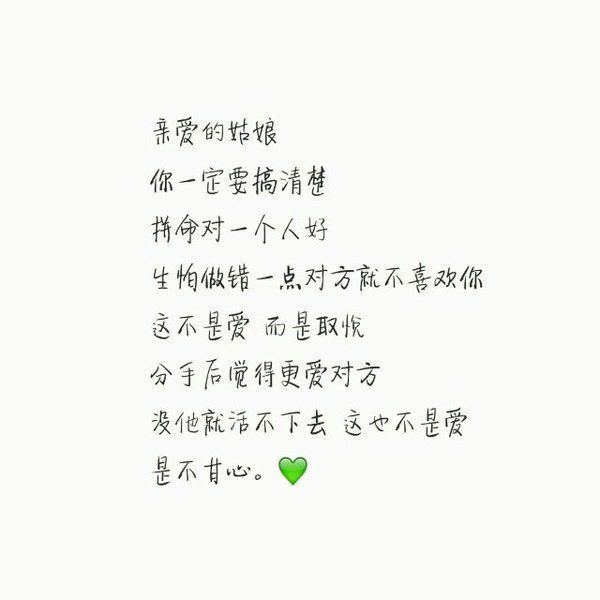 亲爱的姑娘
你一定要搞清楚
拼命对一个人好
生怕做错一点对方就不喜欢你
这不是爱 而是取悦
分手后觉得更爱对方
没他就活不下去 这也不是爱
是不甘心。💚